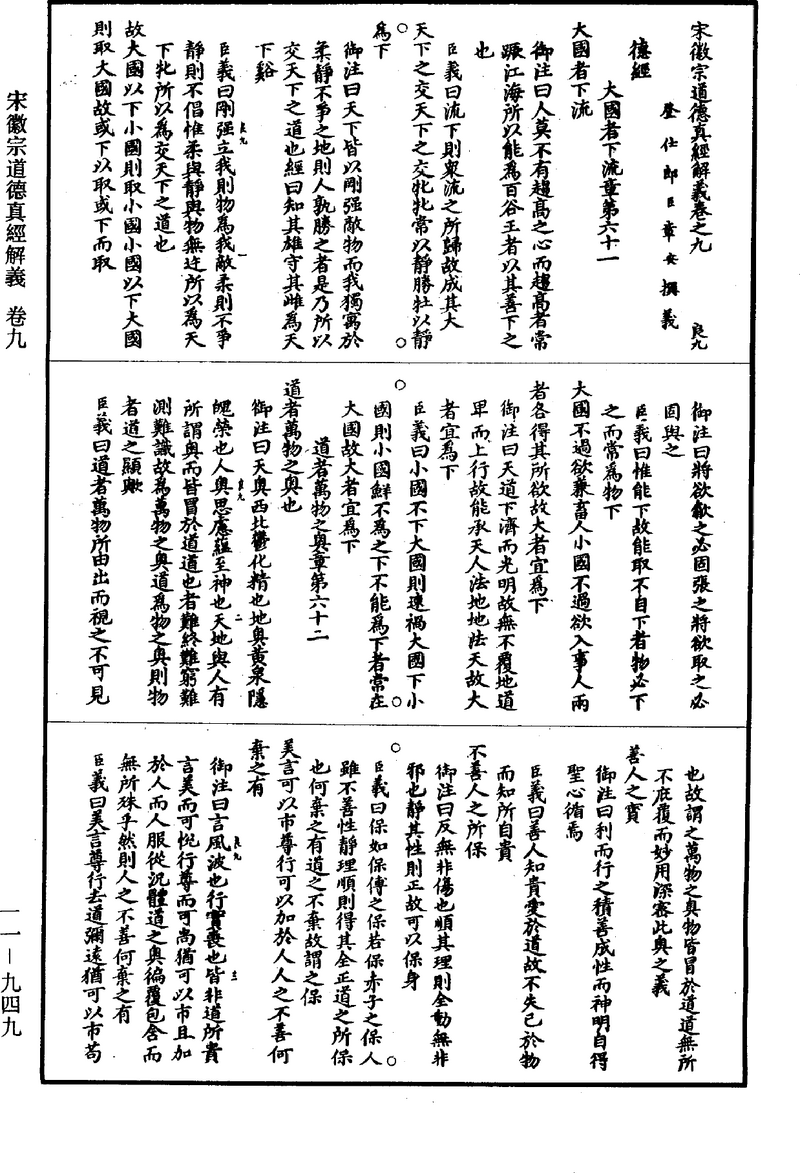 宋徽宗道德真經解義卷之九 良九
登仕郎臣章安撰義
德經
大國者下流章第六十一
大國者下流
御注曰人莫不有趨高之心而趨高者常
蹶江海所以能為百谷王者以其善下之
也
臣義曰流下則衆流之所歸故成其大
天下之交天下之交牝牝常以靜勝牡以靜
為下
御注曰天下皆以剛强敵物而我獨寓於
柔靜不爭之地則人孰勝之者是乃所以
交天下之道也經曰知其雄守其雌為天
下谿
臣義曰剛强立我則物為我敵柔則不爭
靜則不倡惟柔與靜與物無迕所以為天
下牝所以為交天下之道也
故大國以下小國則取小國小國以下大國
則取大國故或下以取或下而取
御注曰將欲歙之必固張之將欲取之必
固與之
臣義曰惟能下故能取不自下者物必下
之而常為物下
大國不過欲兼畜人小國不過欲入事人兩
者各得其所欲故大者宜為下
御注曰天道下濟而光明故無不覆地道
卑而上行故能承天人法地地法天故大
者宜為下
臣義曰小國不下大國則速禍大國下小
國則小國鮮不為之下不能為下者常在
大國故大者宜為下
道者萬物之奧章第六十二
道者萬物之奧也
御注曰天奧西北鬱化精也地奧黃泉隱
魄榮也人奧思慮蘊至神也天地與人有
所謂奧而皆冒於道道也者難終難窮難
測難識故為萬物之奧道為物之奧則物
者道之顯歟
臣義曰道者萬物所由出而視之不可見
也故謂之萬物之奧物皆冒於道道無所
不庇覆而妙用深密此奧之義
善人之寶
御注曰利而行之積善成性而神明自得
聖心循焉
臣義曰善人知貴愛於道故不失己於物
而知所自貴
不善人之所保
御注曰反無非傷也順其理則全動無非
邪也靜其性則正故可以保身
臣義曰保如保傅之保若保赤子之保人
雖不善性靜理順則得其全正道之所保
也何棄之有道之不棄故謂之保
美言可以市尊行可以加於人人之不善何
棄之有
御注曰言風波也行實喪也皆非道所貴
言美而可悅行尊而可尚猶可以市且加
於人而人服從況體道之奧徧覆包含而
無所殊乎然則人之不善何棄之有
臣義曰美言尊行去道彌遠猶可以市苟
良九 一
良九 二
良九 三
宋徽宗道德真經解義 卷九
一一—九四九